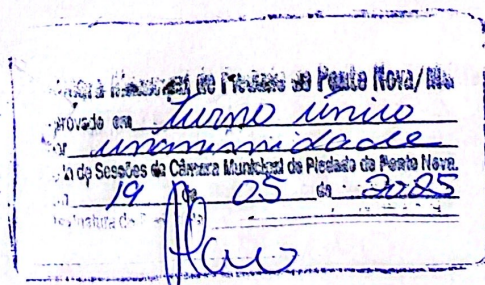 Municipal de Piedade de Ponte Nova/MG
provado em turno único
or unanimidade
la de Sessões da Câmara Municipal de Piedade de Ponte Nova.
19 de 05 de 2025